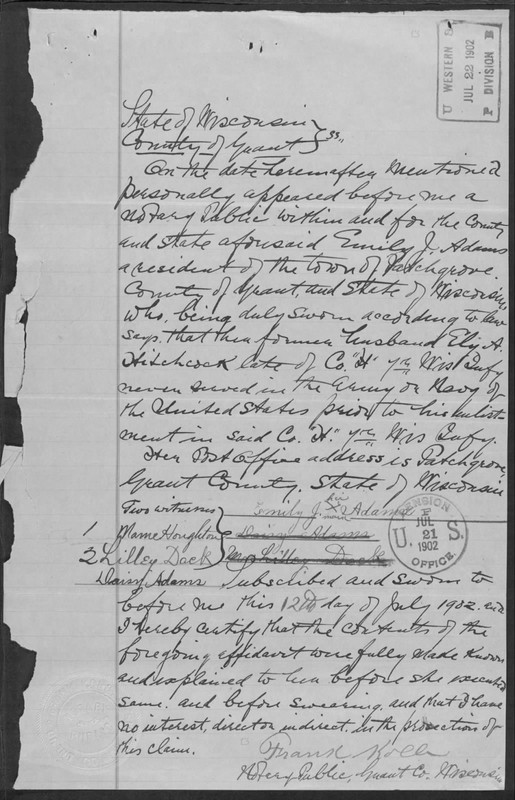 U WESTERN S
JUL 22 1902
P DIVISION E
State of Wisconsin
County of Grant } ss.,
On the date hereinafter mentioned
personally appeared before me a
Notary Public within and for the County
and State aforesaid Emily J. Adams
a resident of the town of Patchgrove
County of Grant, and State of Wisconsin,
who, being duly sworn according to law
says, that her former husband Eli A.
Hitchcock late of Co. "H" 7th Wis Infy
never served in the Army or Navy of
the United States prior to his enlist-
ment in said Co. "H" 7th Wis Infy.
Her Post Office address is Patchgrove
Grant County, State of Wisconsin
Two witnesses Emily J. X Adams
1 Mame Houghton Daisy Adams
2 Lilley Dack Lilley Dack
Daisy Adams Subscribed and sworn to
PENSION
JUL
21
1902
U. S.
OFFICE.
before me this 12th day of July 1902. and
I hereby certify that the contents of the
foregoing affidavit were fully made known
and explained to her before she executed
same. and before swearing, and that I have
no interest, direct or indirect, in the prosecution of
this claim.
Frank
Notary Public, Grant Co. Wisconsin